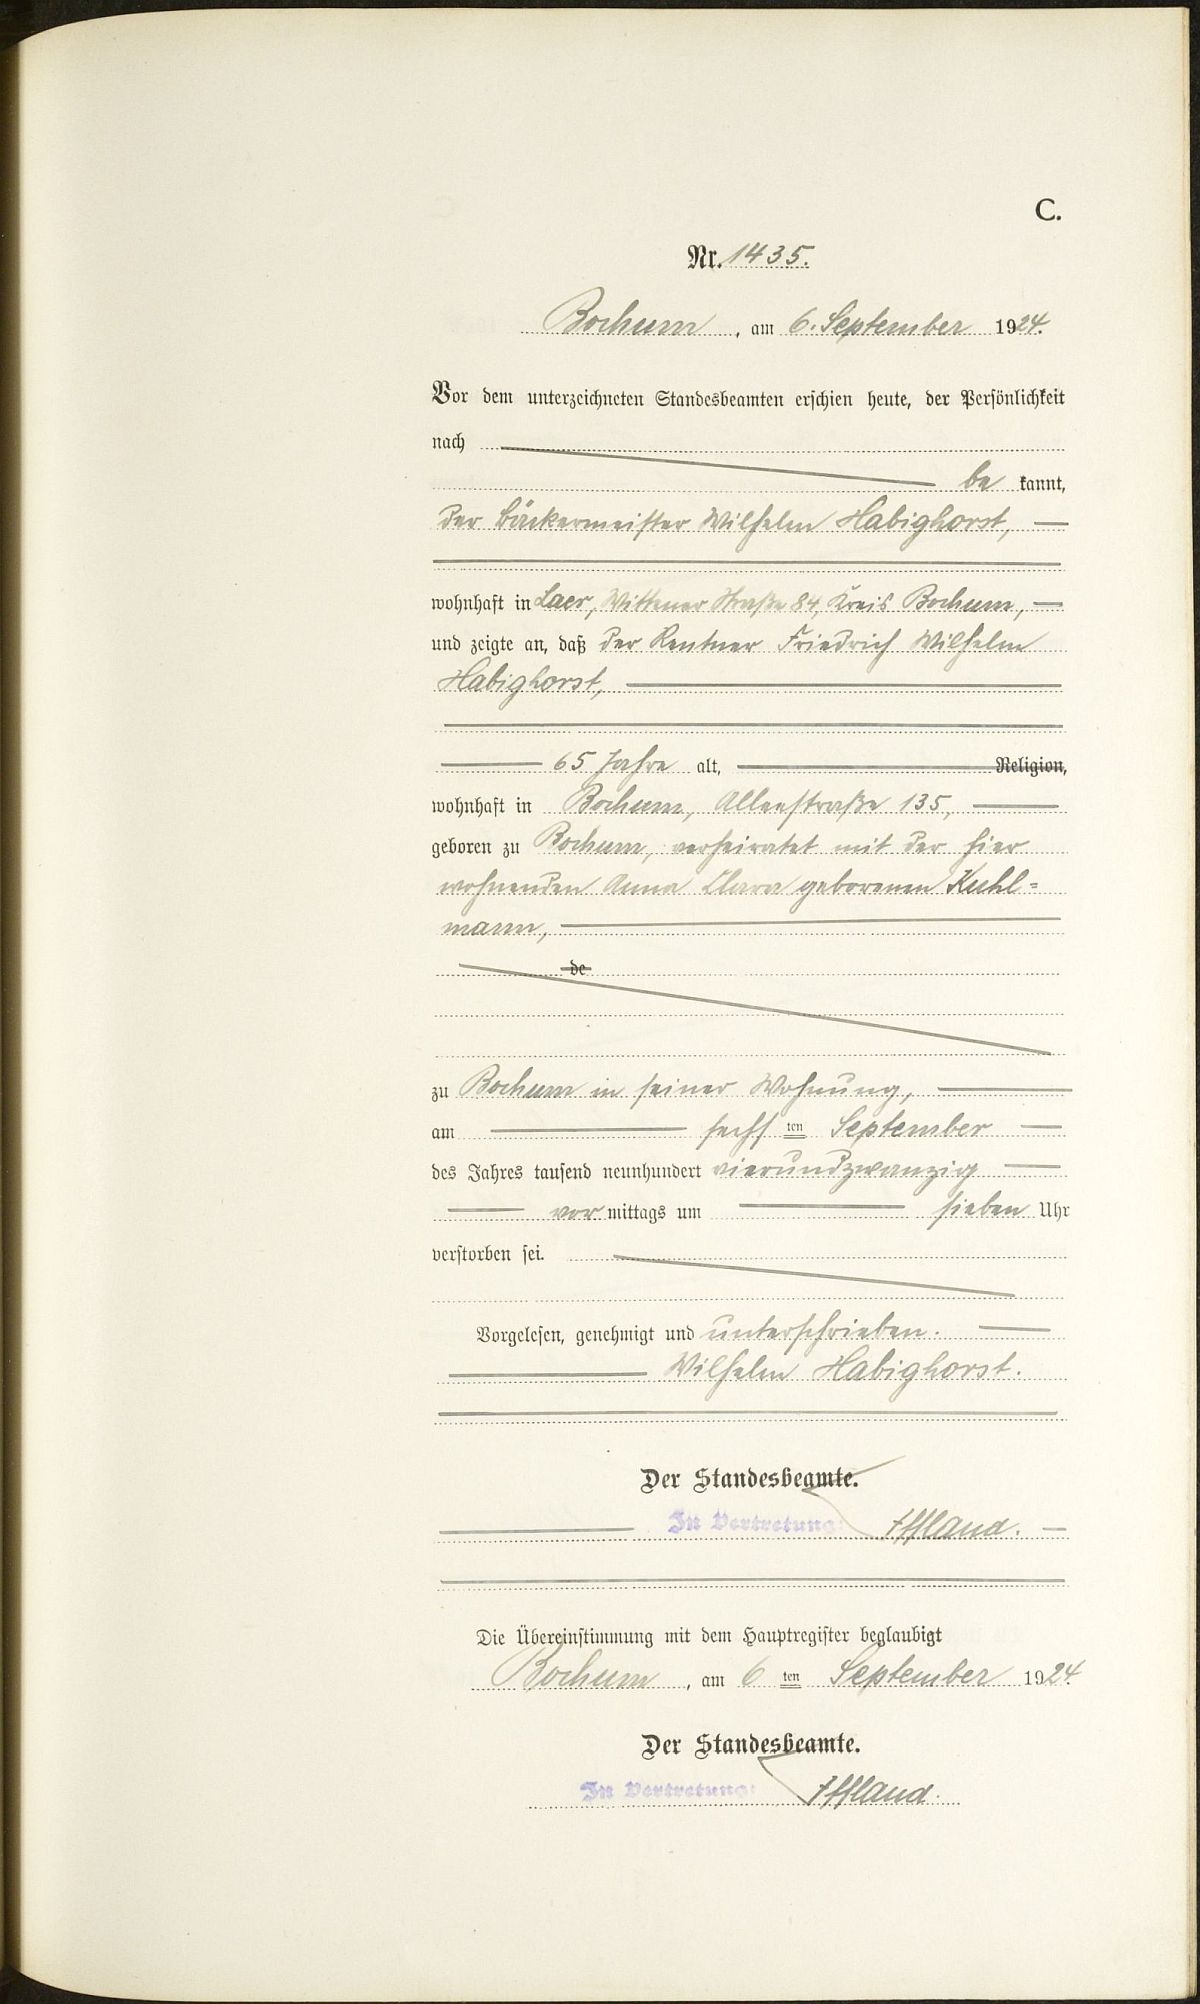 C.
Nr. 1435.
Bochum, am 6. September 1924.
Vor dem unterzeichneten Standesbeamten erschien heute, der Persönlichkeit
nach
be kannt,
der Bäckermeister Wilhelm Habighorst,
wohnhaft in Laer, Wittener Straße 84, Kreis Bochum,
und zeigte an, daß der Rentner Friedrich Wilhelm
Habighorst,
65 Jahre alt, Religion,
wohnhaft in Bochum, Alleestraße 135,
geboren zu Bochum, verheiratet mit der hier
wohnenden Anna Clara geborenen Kuhl=
mann,
de
zu Bochum in seiner Wohnung,
am sechsten September
des Jahres tausend neunhundert vierundzwanzig
vor mittags um sieben Uhr
verstorben sei.
Vorgelesen, genehmigt und unterschrieben.
Wilhelm Habighorst.
Der Standesbeamte.
In Vertretung: Iffland.
Die Übereinstimmung mit dem Hauptregister beglaubigt
Bochum, am 6ten September 1924.
Der Standesbeamte.
In Vertretung: Iffland.